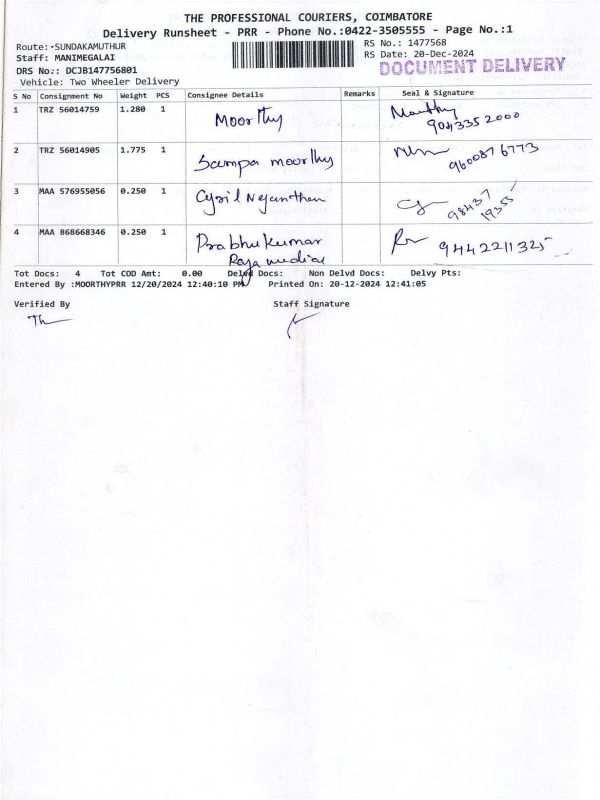 THE PROFESSIONAL COURIERS, COIMBATORE
Delivery Runsheet - PRR - Phone No.:0422-3505555 - Page No.:1
Route:-SUNDAKAMUTHUR RS No.: 1477568
Staff: MANIMEGALAI RS Date: 20-Dec-2024
DRS No.: DCJB147756801 DOCUMENT DELIVERY
Vehicle: Two Wheeler Delivery
S No Consignment No Weight PCS Consignee Details Remarks Seal & Signature
1 TRZ 56014759 1.280 1 Moorthy Moorthy
9043352000
2 TRZ 56014905 1.775 1 Sampa moorthy 9600876773
3 MAA 576955056 0.250 1 Cyril Nejanthan 98437
19355
4 MAA 868668346 0.250 1 Prabhu Kumar 94442211325
Raja medical
Tot Docs: 4 Tot COD Amt: 0.00 Delvd Docs: Non Delvd Docs: Delvy Pts:
Entered By :MOORTHYPRR 12/20/2024 12:40:10 PM Printed On: 20-12-2024 12:41:05
Verified By Staff Signature